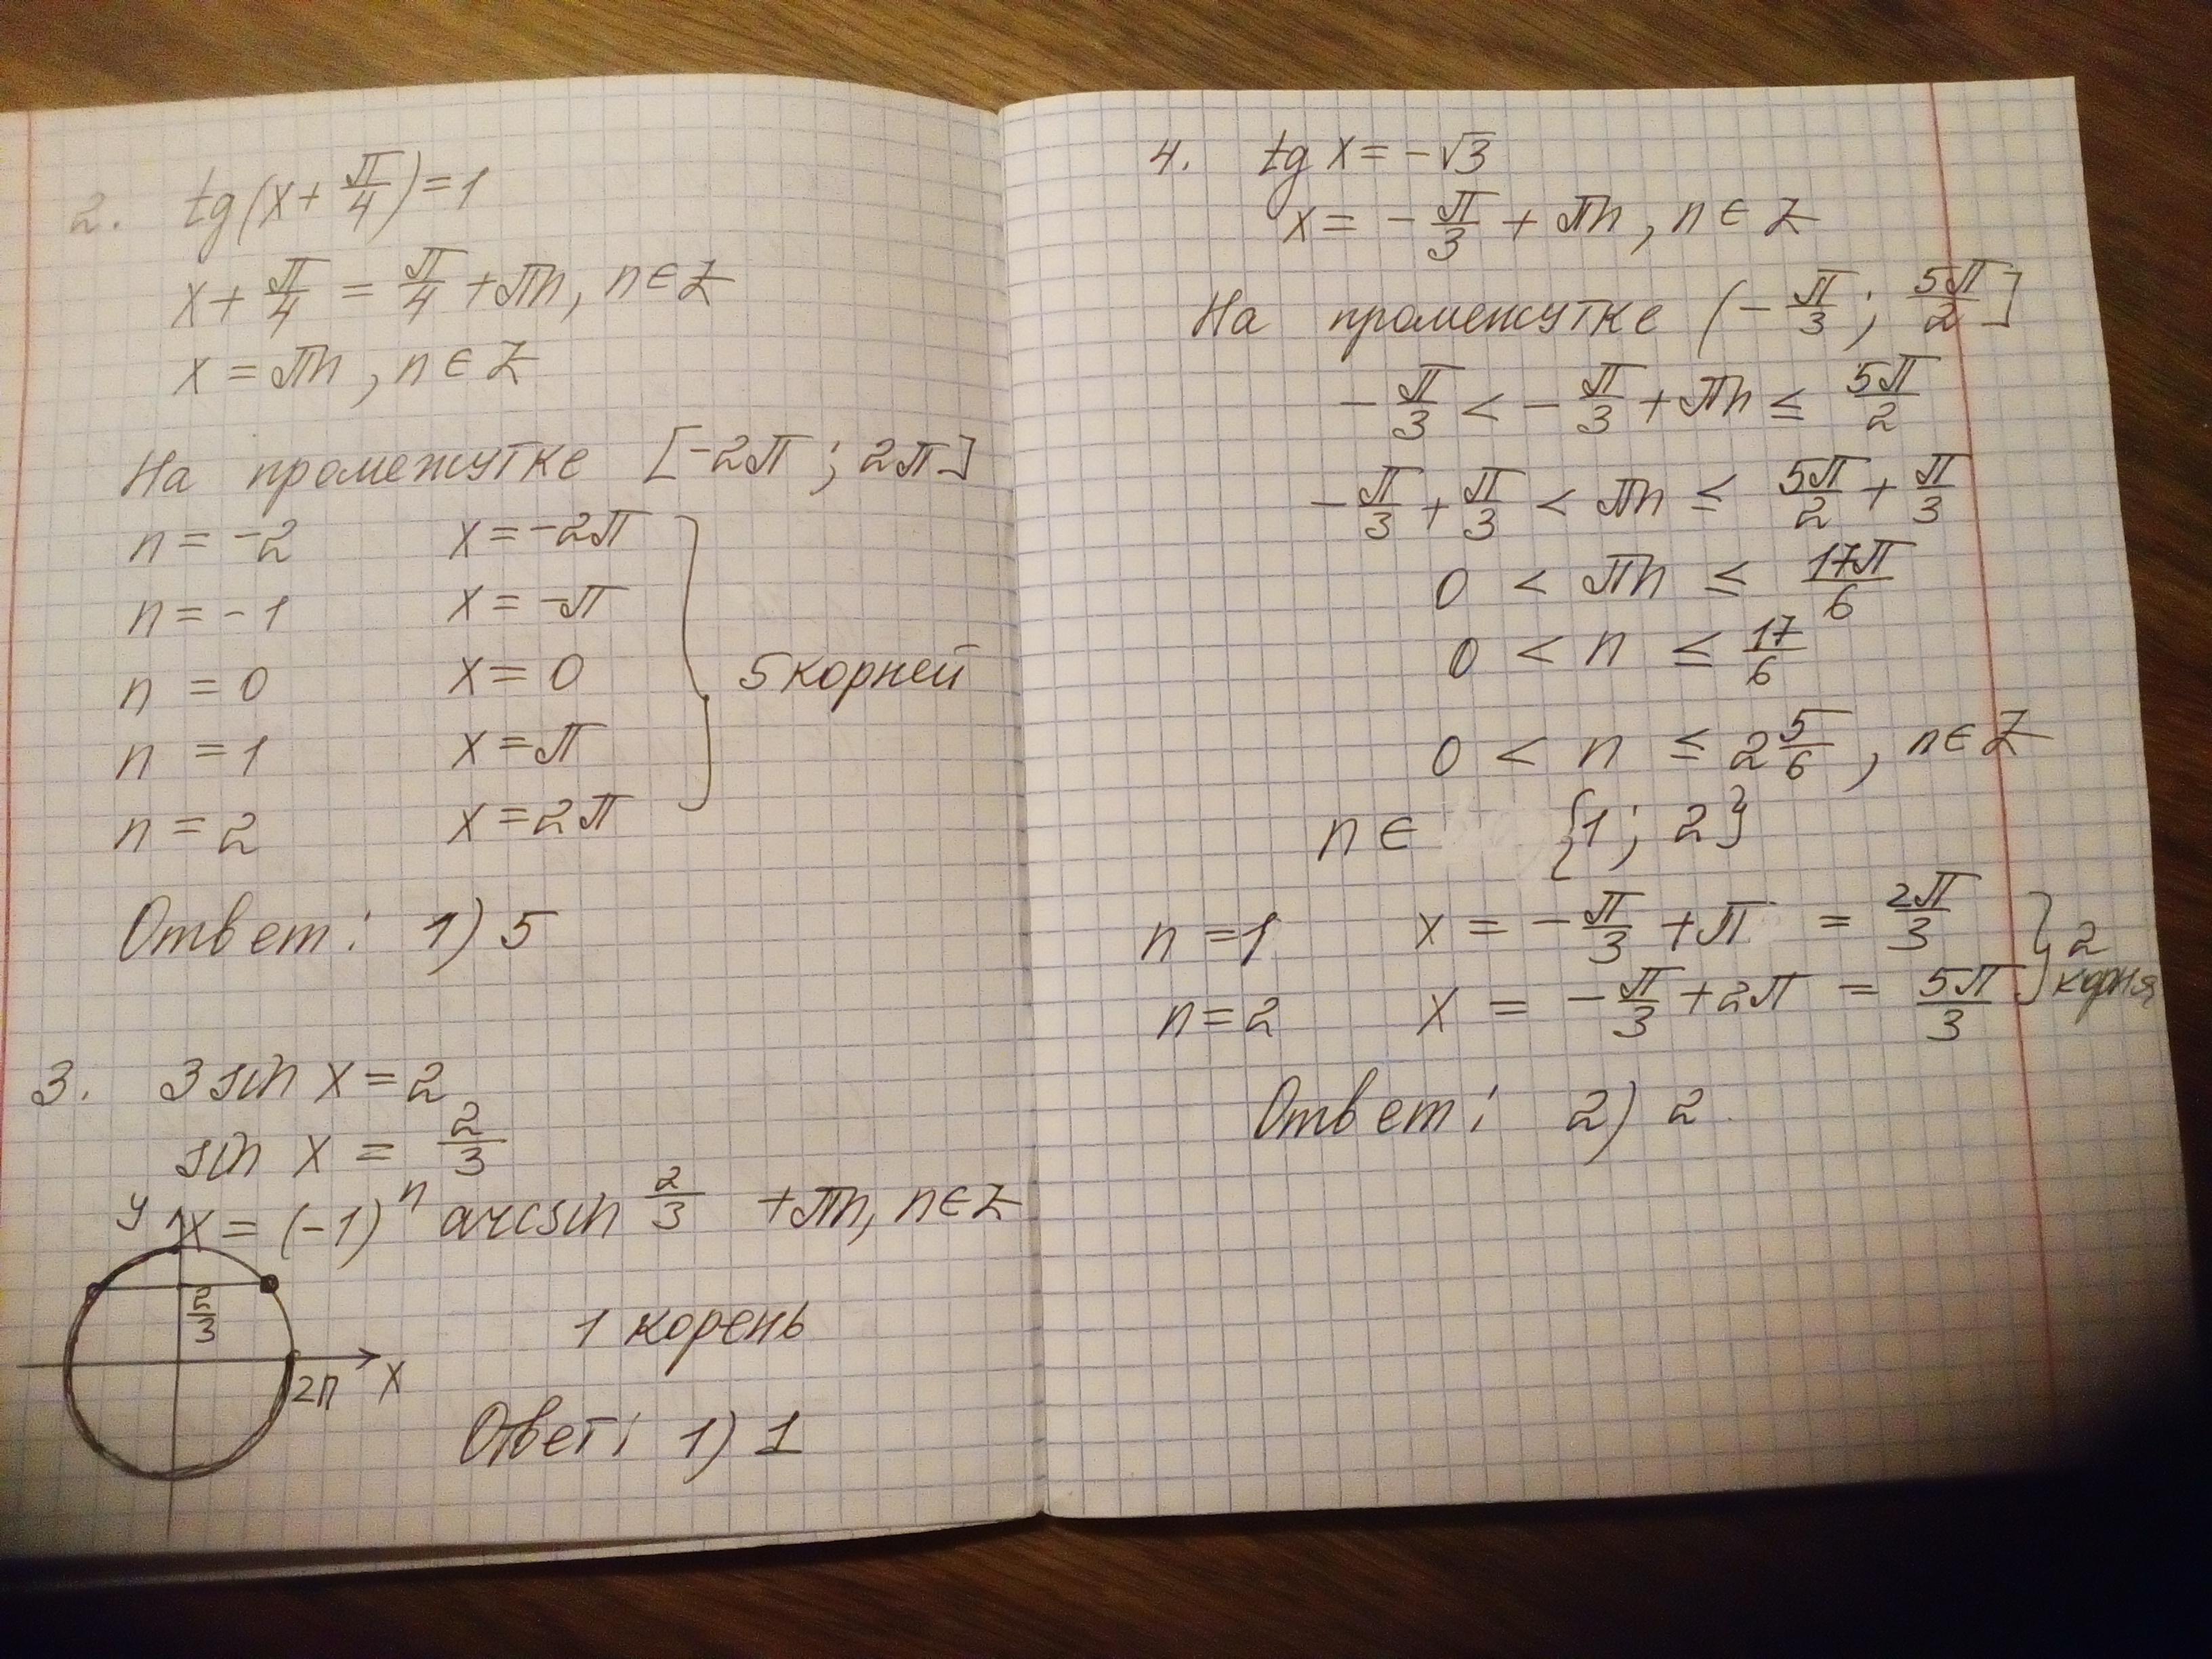 2. tg(x + π/4) = 1
x + π/4 = π/4 + πn, n ∈ Z
x = πn, n ∈ Z
На промежутке [-2π; 2π]
n = -2 x = -2π
n = -1 x = -π
n = 0 x = 0
5 корней
n = 1 x = π
n = 2 x = 2π
Ответ: 1) 5
3. 3 sin x = 2
sin x = 2/3
x = (-1)^n arcsin 2/3 + πn, n ∈ Z
y
2/3
2π x
1 корень
Ответ: 1) 1
4. tg x = -√3
x = -π/3 + πn, n ∈ Z
На промежутке (-π/3; 5π/2]
-π/3 < -π/3 + πn ≤ 5π/2
-π/3 + π/3 < πn ≤ 5π/2 + π/3
0 < πn ≤ 17π/6
0 < n ≤ 17/6
0 < n ≤ 2 5/6, n ∈ Z
n ∈ {1; 2}
n = 1 x = -π/3 + π = 2π/3
n = 2 x = -π/3 + 2π = 5π/3
2
корня
Ответ: 2) 2.